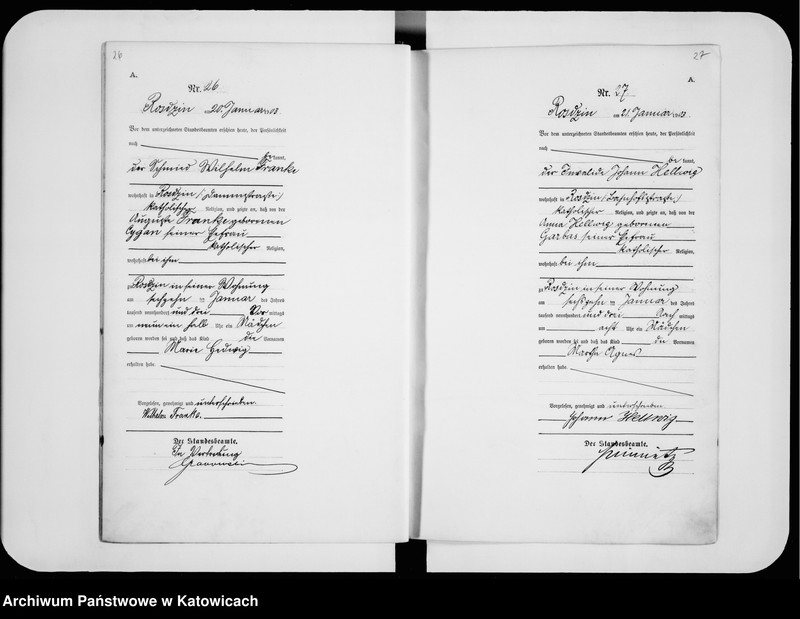 26
A.
Nr. 26
Rosdzin am 20. Januar 1903
Vor dem unterzeichneten Standesbeamten erschien heute, der Persönlichkeit
nach be kannt,
der Schmied Wilhelm Franke
wohnhaft in Rosdzin (Dammstraße)
katholischer Religion, und zeigte an, daß von der
Auguste Franke geborenen
Cygan seiner Ehefrau
katholischer Religion,
wohnhaft bei ihm
zu Rosdzin in seiner Wohnung
am sechzehn ten Januar des Jahres
tausend neunhundert und drei Vor mittags
um neunein halb Uhr ein Mädchen
geboren worden sei und daß das Kind die Vornamen
Marie Hedwig
erhalten habe.
Vorgelesen, genehmigt und unterschrieben
Wilhelm Franke.
Der Standesbeamte.
In Vertretung
27
A.
Nr. 27
Rosdzin am 21. Januar 1903
Vor dem unterzeichneten Standesbeamten erschien heute, der Persönlichkeit
nach be kannt,
der Invalide Johann Hellwig
wohnhaft in Rosdzin (Bahnhofstraße)
katholischer Religion, und zeigte an, daß von der
Anna Hellwig geborenen
Garbas seiner Ehefrau
katholischer Religion,
wohnhaft bei ihm
zu Rosdzin in seiner Wohnung
am sechszehn ten Januar des Jahres
tausend neunhundert und drei Nach mittags
um acht Uhr ein Mädchen
geboren worden sei und daß das Kind die Vornamen
Martha Agnes
erhalten habe.
Vorgelesen, genehmigt und unterschrieben
Johann Hellwig
Der Standesbeamte.
Archiwum Państwowe w Katowicach